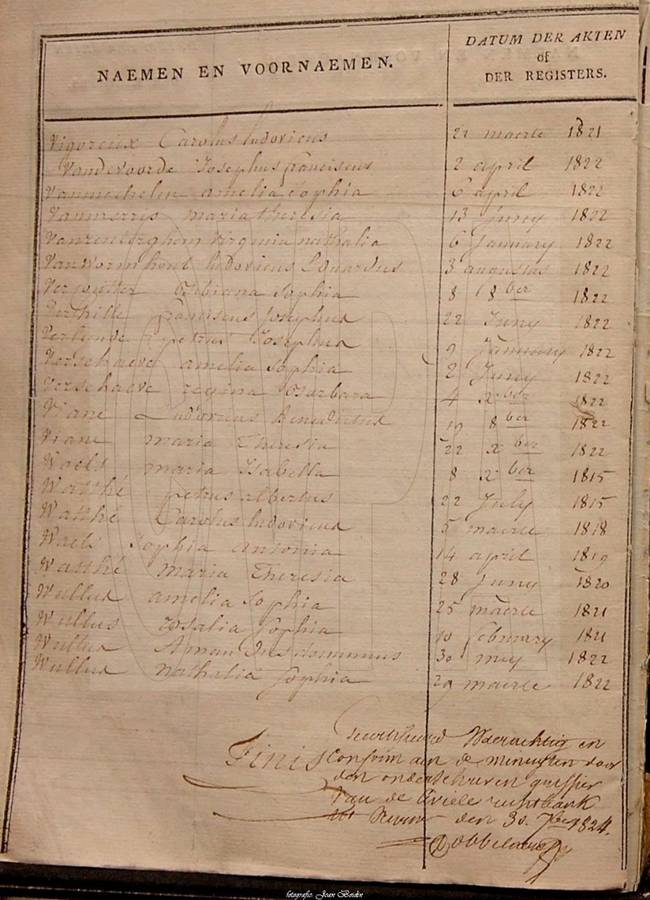 NAEMEN EN VOORNAEMEN.
DATUM DER AKTEN
of
DER REGISTERS.
Vigoreux Carolus ludovicus 21 maerte 1821
Vandevoorde Josephus franciscus 2 april 1822
Vanmechelen amelia Sophia 6 april 1822
maria theresia 13 Juny 1822
Virginia nathalia 6 January 1822
Vanwormhout ludovicus Eduardus 3 augustus 1822
Sophia 8 8ber 1822
franciscus Josephus 22 Juny 1822
petrus Josephus 9 January 1822
Verschaeve amelia Sophia 2 Juny 1822
Verschaeve regina Barbara 4 xber 1822
Viane Ludovicus Benedictus 19 8ber 1822
Viane maria Theresia 22 xber 1822
Waels maria Isabella 8 xber 1815
Watthé petrus albertus 22 July 1815
Watthé Carolus ludovicus 5 maerte 1818
Waels Sophia Antonia 14 april 1819
Watthé maria Theresia 28 Juny 1820
Wullus amelia Sophia 25 maerte 1821
Wullus rosalia Sophia 10 february 1821
Wullus 30 mey 1822
Wullus nathalia Sophia 29 maerte 1822
Finis
Waerachtig en
Conform aen de minuten door
den ondergeschreven greffier
Van de Civiele rechtbank
den 30 7ber 1824.
fotografie: Jean Beirlen